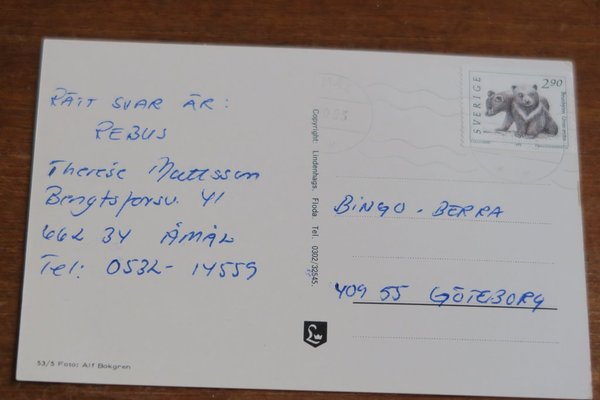 RÄTT SVAR ÄR:
REBUS
Therése Mattsson
Bengtsforsv. 41
662 34 ÅMÅL
Tel: 0532-14559
53/5 Foto: Alf Bokgren
Copyright: Lindenhags, Floda. Tel. 0302/32545.
L
2.90
SVERIGE
BINGO-BERRA
409 55 GÖTEBORG